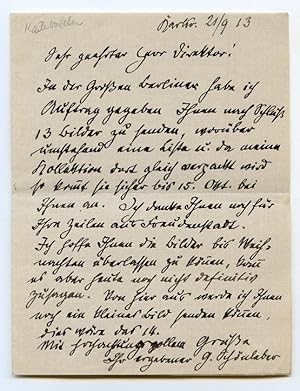 Karlsr. 21/9 13
Sehr geehrter Herr Direktor!
In der Großen Berliner habe ich
Auftrag gegeben Ihnen nach Schluß
13 Bilder zu senden, worüber
umstehend eine Liste u. da meine
Kollektion dort gleich verpackt wird
so kommt sie sicher bis 15. Okt. bei
Ihnen an. Ich danke Ihnen noch für
Ihre Zeilen aus Freudenstadt.
Ich hoffe Ihnen die Bilder bis Weih-
nachten überlassen zu können, kann
es aber heute noch nicht definitiv
zusagen. Von hier aus werde ich Ihnen
noch ein kleines Bild senden können,
dies wäre das 14.
Mit hochachtungsvollem Gruße
Ihr ergebener G. Schönleber